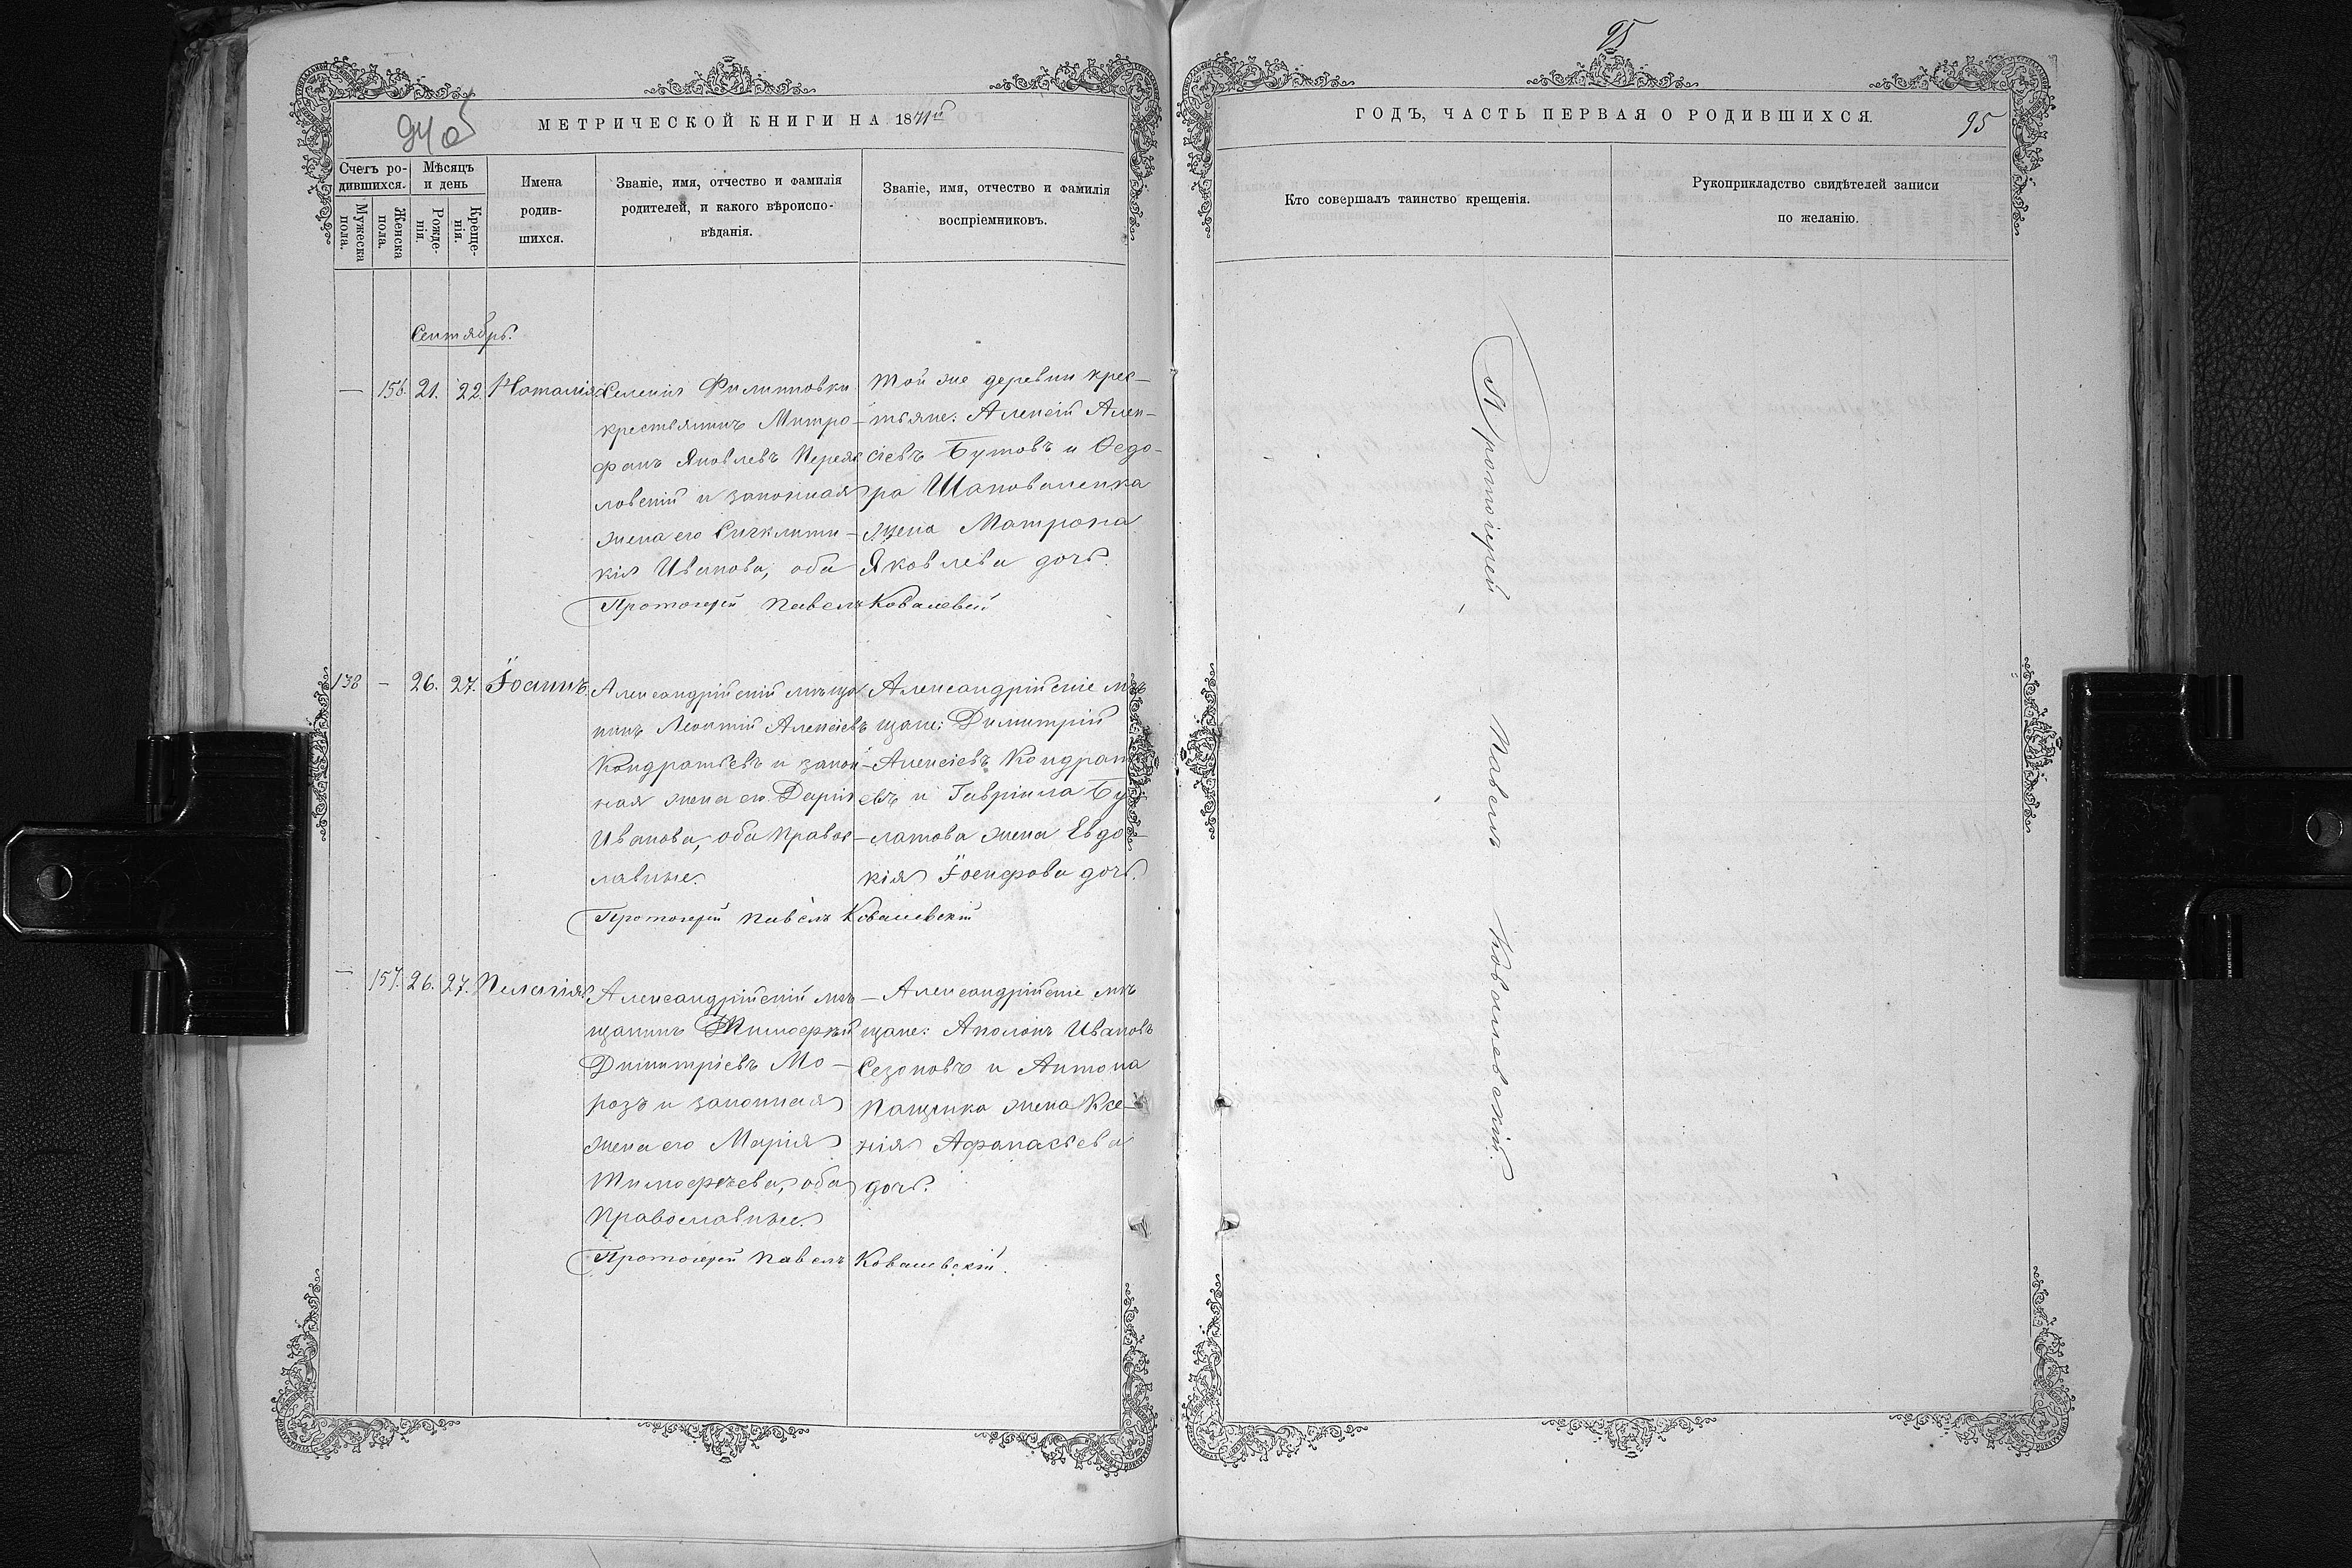 94 об
МЕТРИЧЕСКОЙ КНИГИ НА 1871й
Счетъ ро-
дившихся.
Мѣсяцъ
и день
Мужеска
пола.
Женска
пола.
Рожде-
нія.
Креще-
нія.
Имена
родив-
шихся.
Званіе, имя, отчество и фамилія
родителей, и какого вѣроиспо-
вѣданія.
Званіе, имя, отчество и фамилія
воспріемниковъ.
Сентябрь.
— 156. 21. 22. Наталія
Селенія Филипповки
крестьянинъ Митро-
фанъ Яковлевъ
и законная
жена его Сигклити-
кія Иванова, оба
Той же деревни крес-
тьяне: Алексій Алек-
сіевъ Бутовъ и Ѳедо-
ра Шаповаленка
жена Матрона
Яковлева дочь.
Протоіерей Павелъ Ковалевскій
138 — 26. 27. Іоаннъ.
Александрійскій мѣща
нинъ Леонтій Алексіевъ
Кондратьевъ и закон-
ная жена его Дарія
Иванова, оба право-
лавные.
Александрійскіе мѣ
щане: Димитрій
Алексіевъ Кондрат
евъ и Гавріила Бу
латова жена Евдо-
кія Іосифова дочь.
Протоіерей Павелъ Ковалевскій
— 157. 26. 27. Пелагія
Александрійскій мѣ-
щанинъ Тимофей
Димитріевъ Мо-
розъ и законная
жена его Марія
Тимофеева, оба
православные.
Александрійскіе мѣ
щане: Аполонъ Ивановъ
Сезоновъ и Антона
Пащенка жена Ксе-
нія Афанасьева
дочь.
Протоіерей Павелъ Ковалевскій.
95
ГОДЪ, ЧАСТЬ ПЕРВАЯ О РОДИВШИХСЯ.
95
Кто совершалъ таинство крещенія.
Рукоприкладство свидѣтелей записи
по желанію.
Протоіерей Павелъ Ковалевскій.